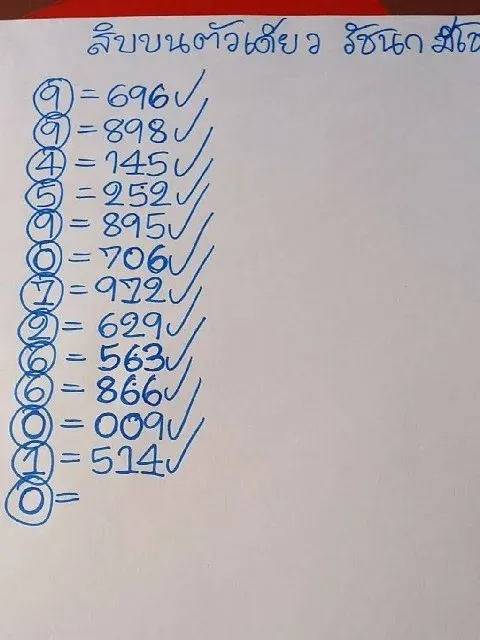 สิบบนตัวเดียว รัชนก มีโช
9 = 696✓
9 = 898✓
4 = 145✓
5 = 252✓
9 = 895✓
0 = 706✓
7 = 972✓
2 = 629✓
6 = 563✓
6 = 866✓
0 = 009✓
1 = 514✓
0 =